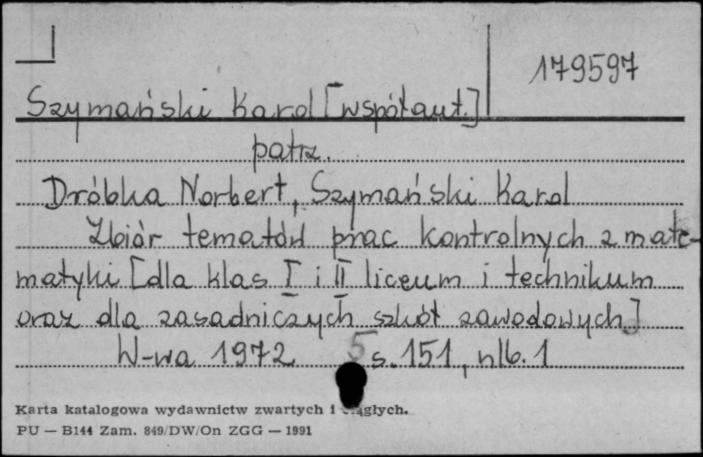 179597
Szymański Karol [współaut.]
patrz.
Dróbka Norbert, Szymański Karol
Zbiór tematów prac kontrolnych z mate-
matyki [dla klas I i II liceum i technikum
oraz dla zasadniczych szkół zawodowych]
W-wa 1972 5 s. 151, nlb. 1
Karta katalogowa wydawnictw zwartych i ciągłych.
PU — B144 Zam. 849/DW/On ZGG — 1991